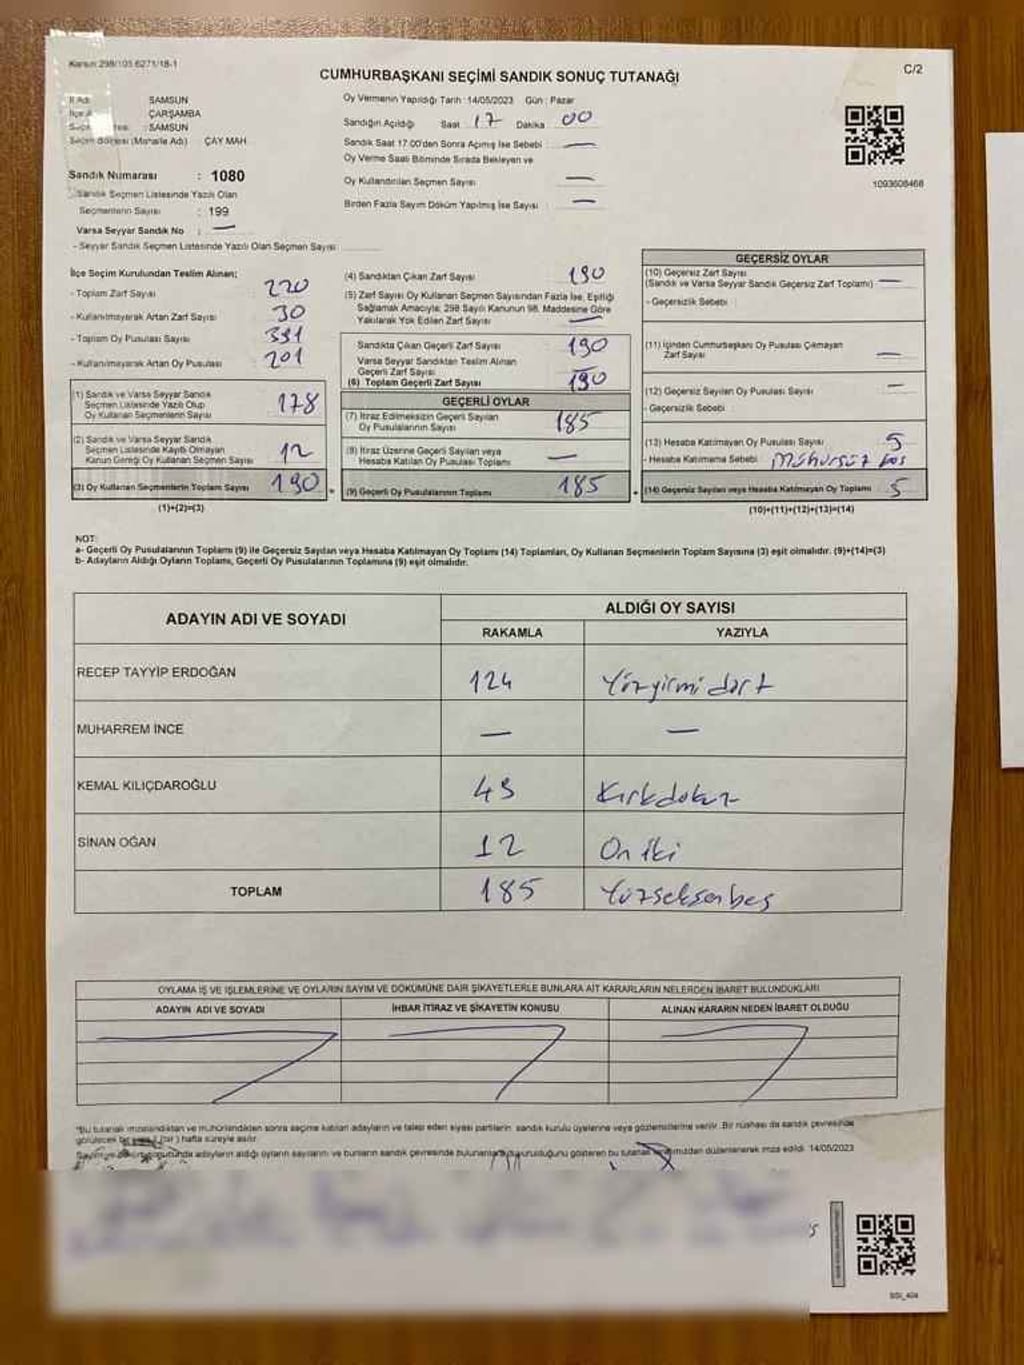 Kanun:298/105 6271/18-1
C/2
CUMHURBAŞKANI SEÇİMİ SANDIK SONUÇ TUTANAĞI
SAMSUN
ÇARŞAMBA
SAMSUN
Seçim Bölgesi (Mahalle Adı) ÇAY MAH.
Sandık Numarası : 1080
Sandık Seçmen Listesinde Yazılı Olan
Seçmenlerin Sayısı : 199
Varsa Seyyar Sandık No : —
- Seyyar Sandık Seçmen Listesinde Yazılı Olan Seçmen Sayısı
Oy Vermenin Yapıldığı Tarih :14/05/2023 Gün : Pazar
Sandığın Açıldığı Saat 17 Dakika 00
Sandık Saat 17:00'den Sonra Açımış İse Sebebi : —
Oy Verme Saati Bitiminde Sırada Bekleyen ve
Oy Kullandırılan Seçmen Sayısı —
Birden Fazla Sayım Döküm Yapılmış İse Sayısı —
1093608468
İlçe Seçim Kurulundan Teslim Alınan;
- Toplam Zarf Sayısı 220
- Kullanılmayarak Artan Zarf Sayısı 30
- Toplam Oy Pusulası Sayısı 391
- Kullanılmayarak Artan Oy Pusulası 201
(1) Sandık ve Varsa Seyyar Sandık
Seçmen Listesinde Yazılı Olup
Oy Kullanan Seçmenlerin Sayısı 178
(2) Sandık ve Varsa Seyyar Sandık
Seçmen Listesinde Kayıtlı Olmayan
Kanun Gereği Oy Kullanan Seçmen Sayısı 12
(3) Oy Kullanan Seçmenlerin Toplam Sayısı 190
(1)+(2)=(3)
(4) Sandıktan Çıkan Zarf Sayısı 190
(5) Zarf Sayısı Oy Kullanan Seçmen Sayısından Fazla İse, Eşitliği
Sağlamak Amacıyla; 298 Sayılı Kanunun 98. Maddesine Göre
Yakılarak Yok Edilen Zarf Sayısı —
Sandıkta Çıkan Geçerli Zarf Sayısı 190
Varsa Seyyar Sandıktan Teslim Alınan
Geçerli Zarf Sayısı —
(6) Toplam Geçerli Zarf Sayısı 190
GEÇERLİ OYLAR
(7) İtiraz Edilmeksizin Geçerli Sayılan
Oy Pusulalarının Sayısı 185
(8) İtiraz Üzerine Geçerli Sayılan veya
Hesaba Katılan Oy Pusulası Toplamı —
(9) Geçerli Oy Pusulalarının Toplamı 185
GEÇERSİZ OYLAR
(10) Geçersiz Zarf Sayısı
(Sandık ve Varsa Seyyar Sandık Geçersiz Zarf Toplamı) —
- Geçersizlik Sebebi :
(11) İçinden Cumhurbaşkanı Oy Pusulası Çıkmayan
Zarf Sayısı —
(12) Geçersiz Sayılan Oy Pusulası Sayısı —
- Geçersizlik Sebebi :
(13) Hesaba Katılmayan Oy Pusulası Sayısı 5
- Hesaba Katılmama Sebebi : Mühürsüz boş
(14) Geçersiz Sayılan veya Hesaba Katılmayan Oy Toplamı 5
(10)+(11)+(12)+(13)=(14)
NOT:
a- Geçerli Oy Pusulalarının Toplamı (9) ile Geçersiz Sayılan veya Hesaba Katılmayan Oy Toplamı (14) Toplamları, Oy Kullanan Seçmenlerin Toplam Sayısına (3) eşit olmalıdır. (9)+(14)=(3)
b- Adayların Aldığı Oyların Toplamı, Geçerli Oy Pusulalarının Toplamına (9) eşit olmalıdır.
ADAYIN ADI VE SOYADI
ALDIĞI OY SAYISI
RAKAMLA YAZIYLA
RECEP TAYYİP ERDOĞAN 124 Yüzyirmi dört
MUHARREM İNCE — —
KEMAL KILIÇDAROĞLU 49 Kırkdokuz
SİNAN OĞAN 12 On iki
TOPLAM 185 Yüzseksenbeş
OYLAMA İŞ VE İŞLEMLERİNE VE OYLARIN SAYIM VE DÖKÜMÜNE DAİR ŞİKAYETLERLE BUNLARA AİT KARARLARIN NELERDEN İBARET BULUNDUKLARI
ADAYIN ADI VE SOYADI İHBAR İTİRAZ VE ŞİKAYETİN KONUSU ALINAN KARARIN NEDEN İBARET OLDUĞU
*Bu tutanak imzalandıktan ve mühürlendikten sonra seçime katılan adayların ve talep eden siyasi partilerin sandık kurulu üyelerine veya gözlemcilerine verilir. Bir nüshası da sandık çevresinde
görülecek bir yere 1 (bir) hafta süreyle asılır.
adayların aldığı oyların sayılarını ve bunların sandık çevresinde gösteren bu tutanak tarafımızdan düzenlenerek imza edildi. 14/05/2023